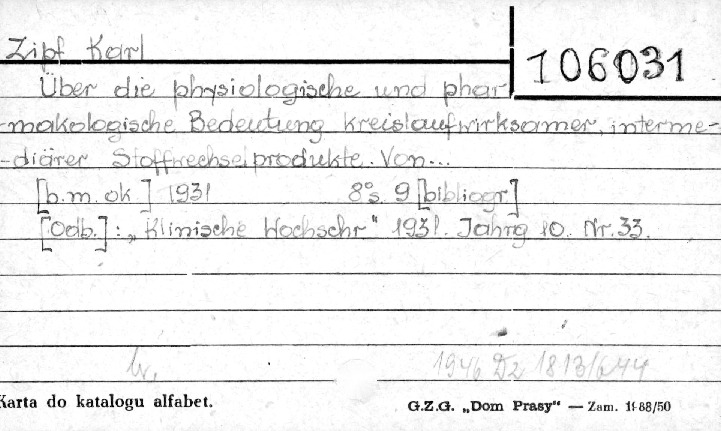 Zipf Karl
106031
Über die physiologische und phar
-makologische Bedeutung kreislaufwirksamer, interme-
-diärer Stoffwechselprodukte. Von...
[b.m. ok] 1931 8° s. 9 [bibliogr]
[Odb.]: „Klinische Wochschr" 1931. Jahrg 10. Nr. 33.
1946 Dz 1813/644
Karta do katalogu alfabet.
G.Z.G. „Dom Prasy" — Zam. 1688/50